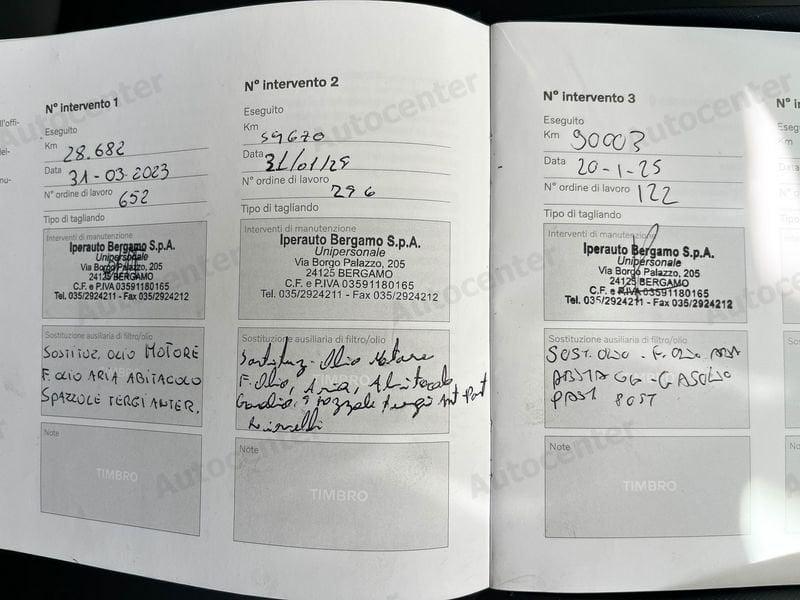 N° intervento 1
Eseguito
Km 28.682
Data 31-03-2023
N° ordine di lavoro 652
Tipo di tagliando
Interventi di manutenzione
Iperauto Bergamo S.p.A.
Unipersonale
Via Borgo Palazzo, 205
24125 BERGAMO
C.F. e P.IVA 03591180165
Tel. 035/2924211 - Fax 035/2924212
Sostituzione ausiliaria di filtro/olio
SOSTITUZ. OLIO MOTORE
F. OLIO ARIA ABITACOLO
SPAZZOLE TERGI ANTER.
Note
TIMBRO
N° intervento 2
Eseguito
Km 59670
Data 31/01/24
N° ordine di lavoro 296
Tipo di tagliando
Interventi di manutenzione
Iperauto Bergamo S.p.A.
Unipersonale
Via Borgo Palazzo, 205
24125 BERGAMO
C.F. e P.IVA 03591180165
Tel. 035/2924211 - Fax 035/2924212
Sostituzione ausiliaria di filtro/olio
Sostituz. Olio Motore
F. Olio, Aria, Abitacolo
Spazzole Tergi Ant Post
Note
TIMBRO
N° intervento 3
Eseguito
Km 90003
Data 20-1-25
N° ordine di lavoro 122
Tipo di tagliando
Interventi di manutenzione
Iperauto Bergamo S.p.A.
Unipersonale
Via Borgo Palazzo, 205
24125 BERGAMO
C.F. e P.IVA 03591180165
Tel. 035/2924211 - Fax 035/2924212
Sostituzione ausiliaria di filtro/olio
SOST. OLIO - F. OLIO ARIA
GASOLIO
POST
Note
TIMBRO
Autocenter